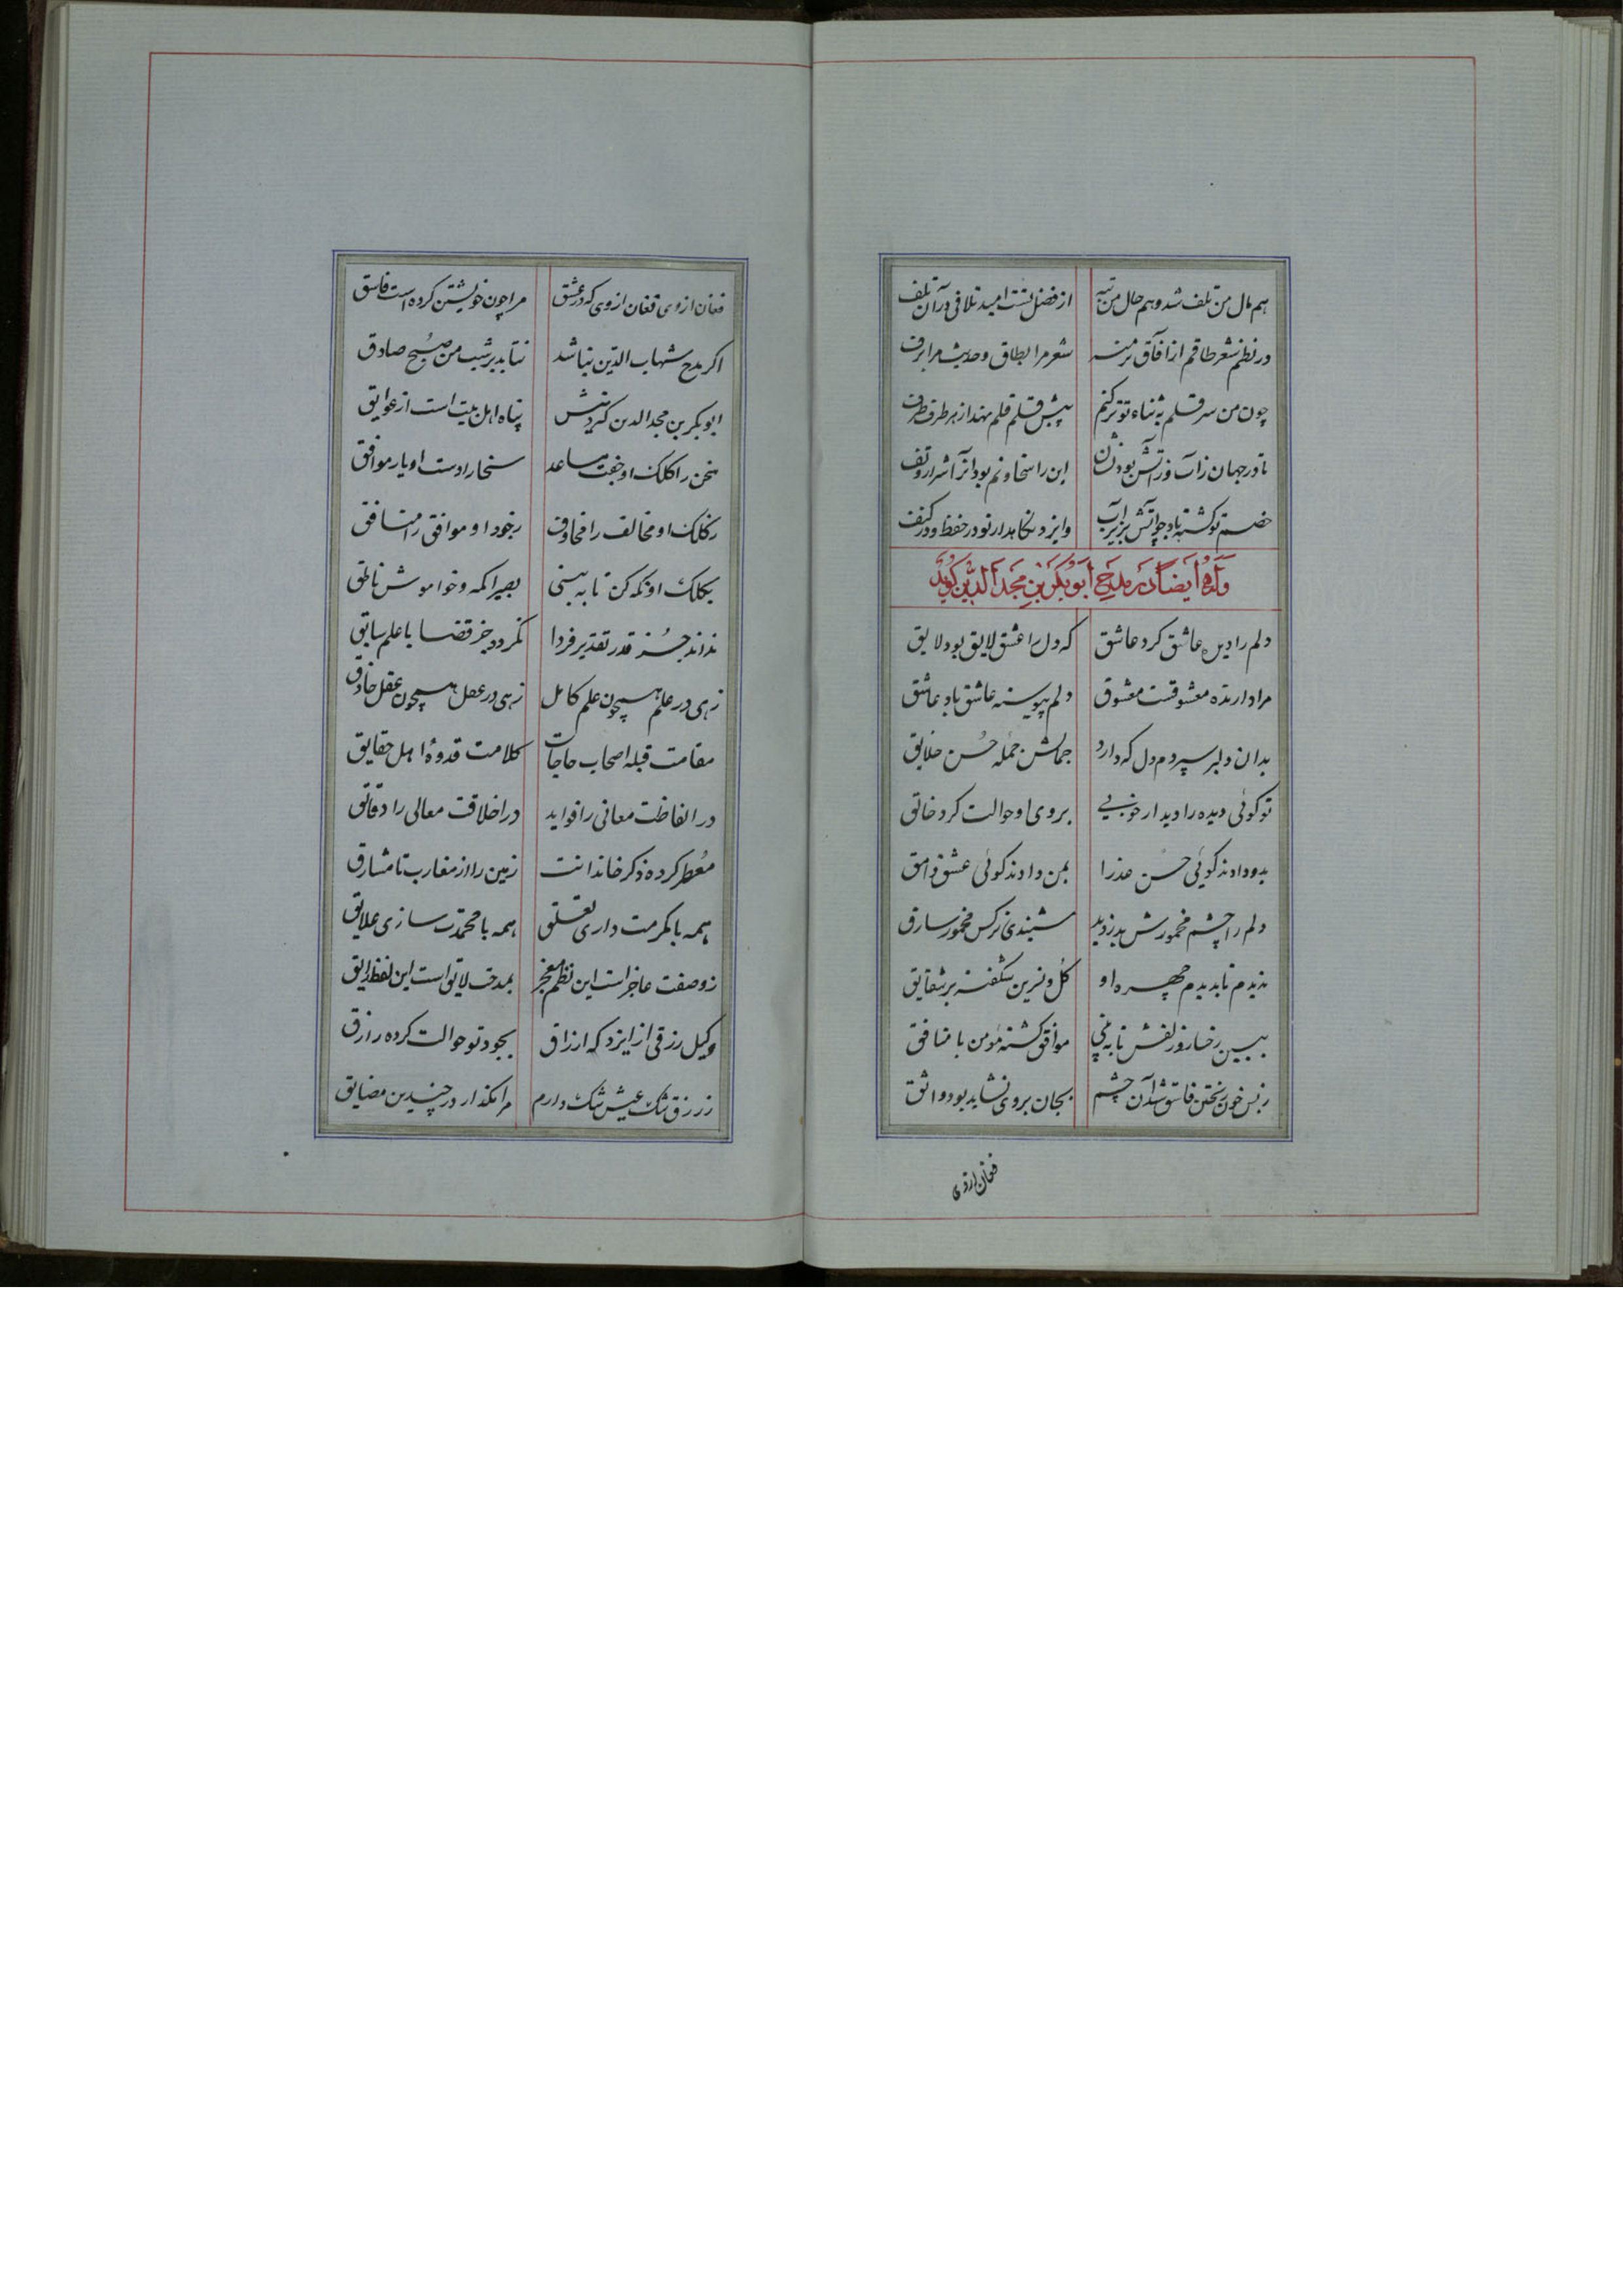 هم مال من تلف شد و هم حال من تبه از فضل تست امید تلافی در آن تلف
در نظم شعر طاقم از آفاق شعر مرا بطاق و حدیث مرا برف
چون من سر قلم به ثناء تو تر کنم پیش قلم نهند از هر طرف طرف
تا در جهان ز آب و ز آتش بود این را سخا و نم بود آنرا شرار و تف
خصم تو کشته باد چو آتش بزیر آب وایزد نگاهدار تو در حفظ و در کنف
وله ایضا در مدح ابوبکر بن مجد الدین کوید
دلم را عاشق کرد عاشق که دل را عشق لایق بود لایق
مرا دارنده معشوقست معشوق دلم پیوسته عاشق باد عاشق
بدان دلبر سپردم دل که دارد جمالش جمله حسن خلایق
تو کوئی دیده را دیدار خوبی بروی او حوالت کرد خالق
بدو دادند کوئی حسن عذرا بمن دادند کوئی عشق وامق
دلم را چشم مخمورش بدزدید شنیدی نرکس مخمور سارق
ندیدم تا بدیدم چهره او کل و نسرین شکفته بر شقایق
ببین رخسار و زلفش تا به بینی موافق کشته مومن با منافق
ز بس خون ریختن فاسق شد آن چشم بجان بر وی نشاید بود واثق
فغان از وی
فغان از وی فغان از وی که در عشق مرا چون خویشتن کرده است فاسق
اکر مدح شهاب الدین نباشد نتابد بر شب من صبح صادق
ابوبکر بن مجد الدین پناه اهل بیت است از عوایق
سخن را کلک او جفت مساعد سخا را دست او یار موافق
ز کلک او مخالف را مخاوف ز جود او موافق را
بکلک او نکه کن تا به بینی بصیر اکمه و خاموش ناطق
نداند جز قدر تقدیر فردا نکردد جز قضا با علم سابق
زهی در علم همچون علم کامل زهی در عقل همچون عقل حاذق
مقامت قبله اصحاب حاجات کلامت قدوهٔ اهل حقایق
در الفاظت معانی را فواید در اخلاقت معالی را دقائق
معطر کرده ذکر خاندانت زمین را از مغارب تا مشارق
همه با مکرمت داری تعلق همه با محمدت سازی علایق
ز وصفت عاجز است این نظم معجز بمدحت لایق است این لفظ رایق
وکیل رزقی از ایزد که ارزاق بجود تو حوالت کرده رازق
ز رزق تنک عیش تنک دارم مرا مکذار در چندین مضایق